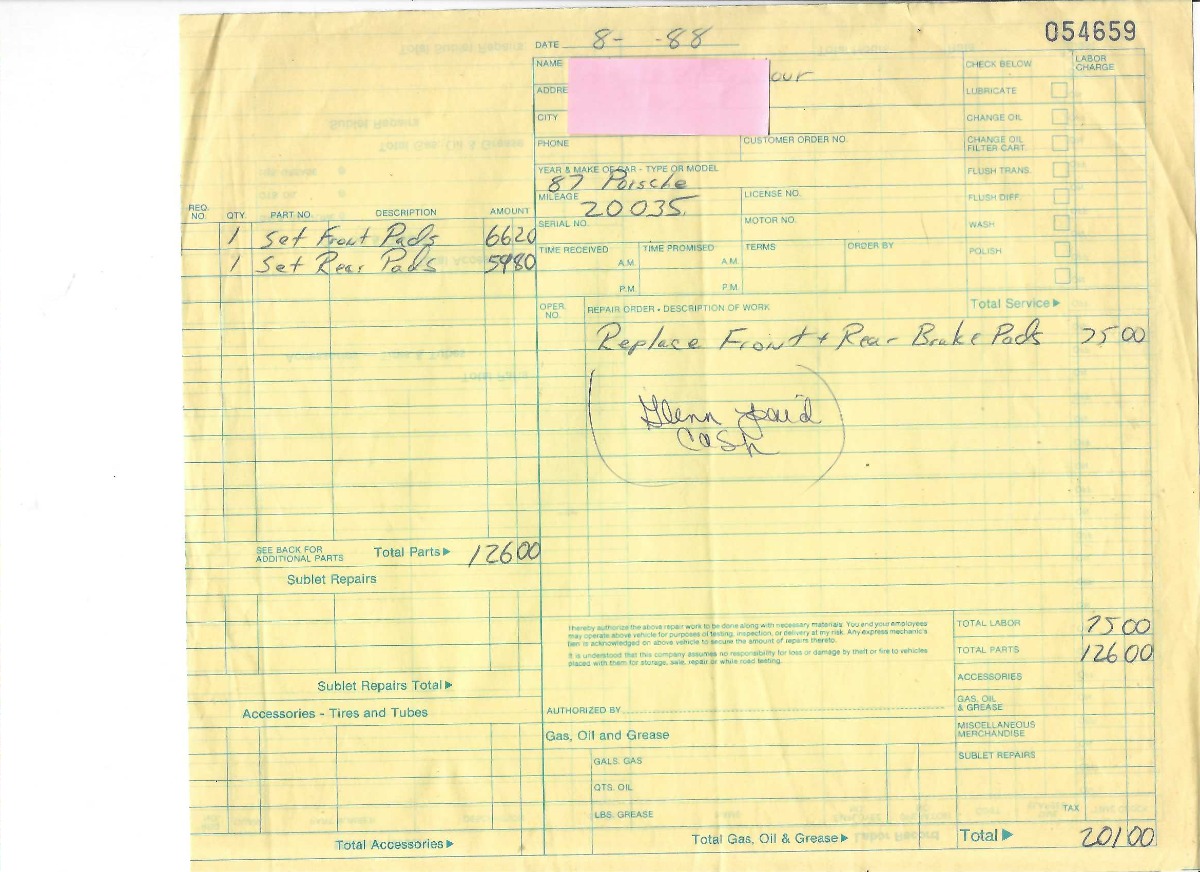 054659
DATE 8- -88
NAME our
ADDRE
CITY
PHONE
CUSTOMER ORDER NO.
YEAR & MAKE OF CAR - TYPE OR MODEL
87 Porsche
MILEAGE
20035
LICENSE NO.
SERIAL NO.
MOTOR NO.
TIME RECEIVED
A.M.
P.M.
TIME PROMISED
A.M.
P.M.
TERMS
ORDER BY
CHECK BELOW
LABOR CHARGE
LUBRICATE
CHANGE OIL
CHANGE OIL
FILTER CART.
FLUSH TRANS.
FLUSH DIFF.
WASH
POLISH
Total Service
REQ. NO. QTY. PART NO. DESCRIPTION AMOUNT
1 Set Front Pads 6620
1 Set Rear Pads 5980
OPER. NO.
REPAIR ORDER - DESCRIPTION OF WORK
Replace Front + Rear Brake Pads 7500
Glenn paid
cash
SEE BACK FOR
ADDITIONAL PARTS
Total Parts 12600
Sublet Repairs
Sublet Repairs Total
Accessories - Tires and Tubes
Total Accessories
I hereby authorize the above repair work to be done along with necessary materials. You and your employees
may operate above vehicle for purposes of testing, inspection, or delivery at my risk. Any express mechanic's
lien is acknowledged on above vehicle to secure the amount of repairs thereto.
It is understood that this company assumes no responsibility for loss or damage by theft or fire to vehicles
placed with them for storage, sale, repair or while road testing.
AUTHORIZED BY
Gas, Oil and Grease
GALS. GAS
QTS. OIL
LBS. GREASE
Total Gas, Oil & Grease
TOTAL LABOR 7500
TOTAL PARTS 12600
ACCESSORIES
GAS, OIL
& GREASE
MISCELLANEOUS
MERCHANDISE
SUBLET REPAIRS
TAX
Total 20100